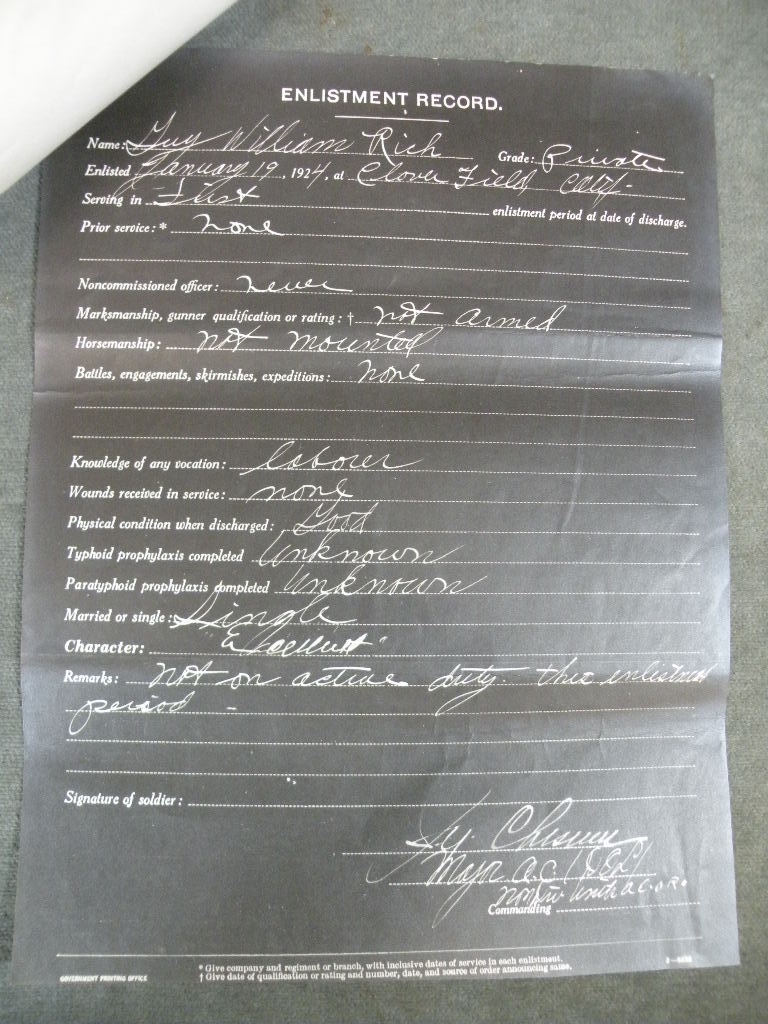 ENLISTMENT RECORD.
Name: Guy William Rich Grade: Private
Enlisted January 19, 1924, at Clover Field Calif.
Serving in First enlistment period at date of discharge.
Prior service: * none
Noncommissioned officer: never
Marksmanship, gunner qualification or rating: † not armed
Horsemanship: not mounted
Battles, engagements, skirmishes, expeditions: none
Knowledge of any vocation: laborer
Wounds received in service: none
Physical condition when discharged: Good
Typhoid prophylaxis completed Unknown
Paratyphoid prophylaxis completed Unknown
Married or single: Single
Character: "Excellent"
Remarks: not on active duty this enlistment
period -
Signature of soldier:
Major A.C.
Commanding
* Give company and regiment or branch, with inclusive dates of service in each enlistment.
† Give date of qualification or rating and number, date, and source of order announcing same.
GOVERNMENT PRINTING OFFICE